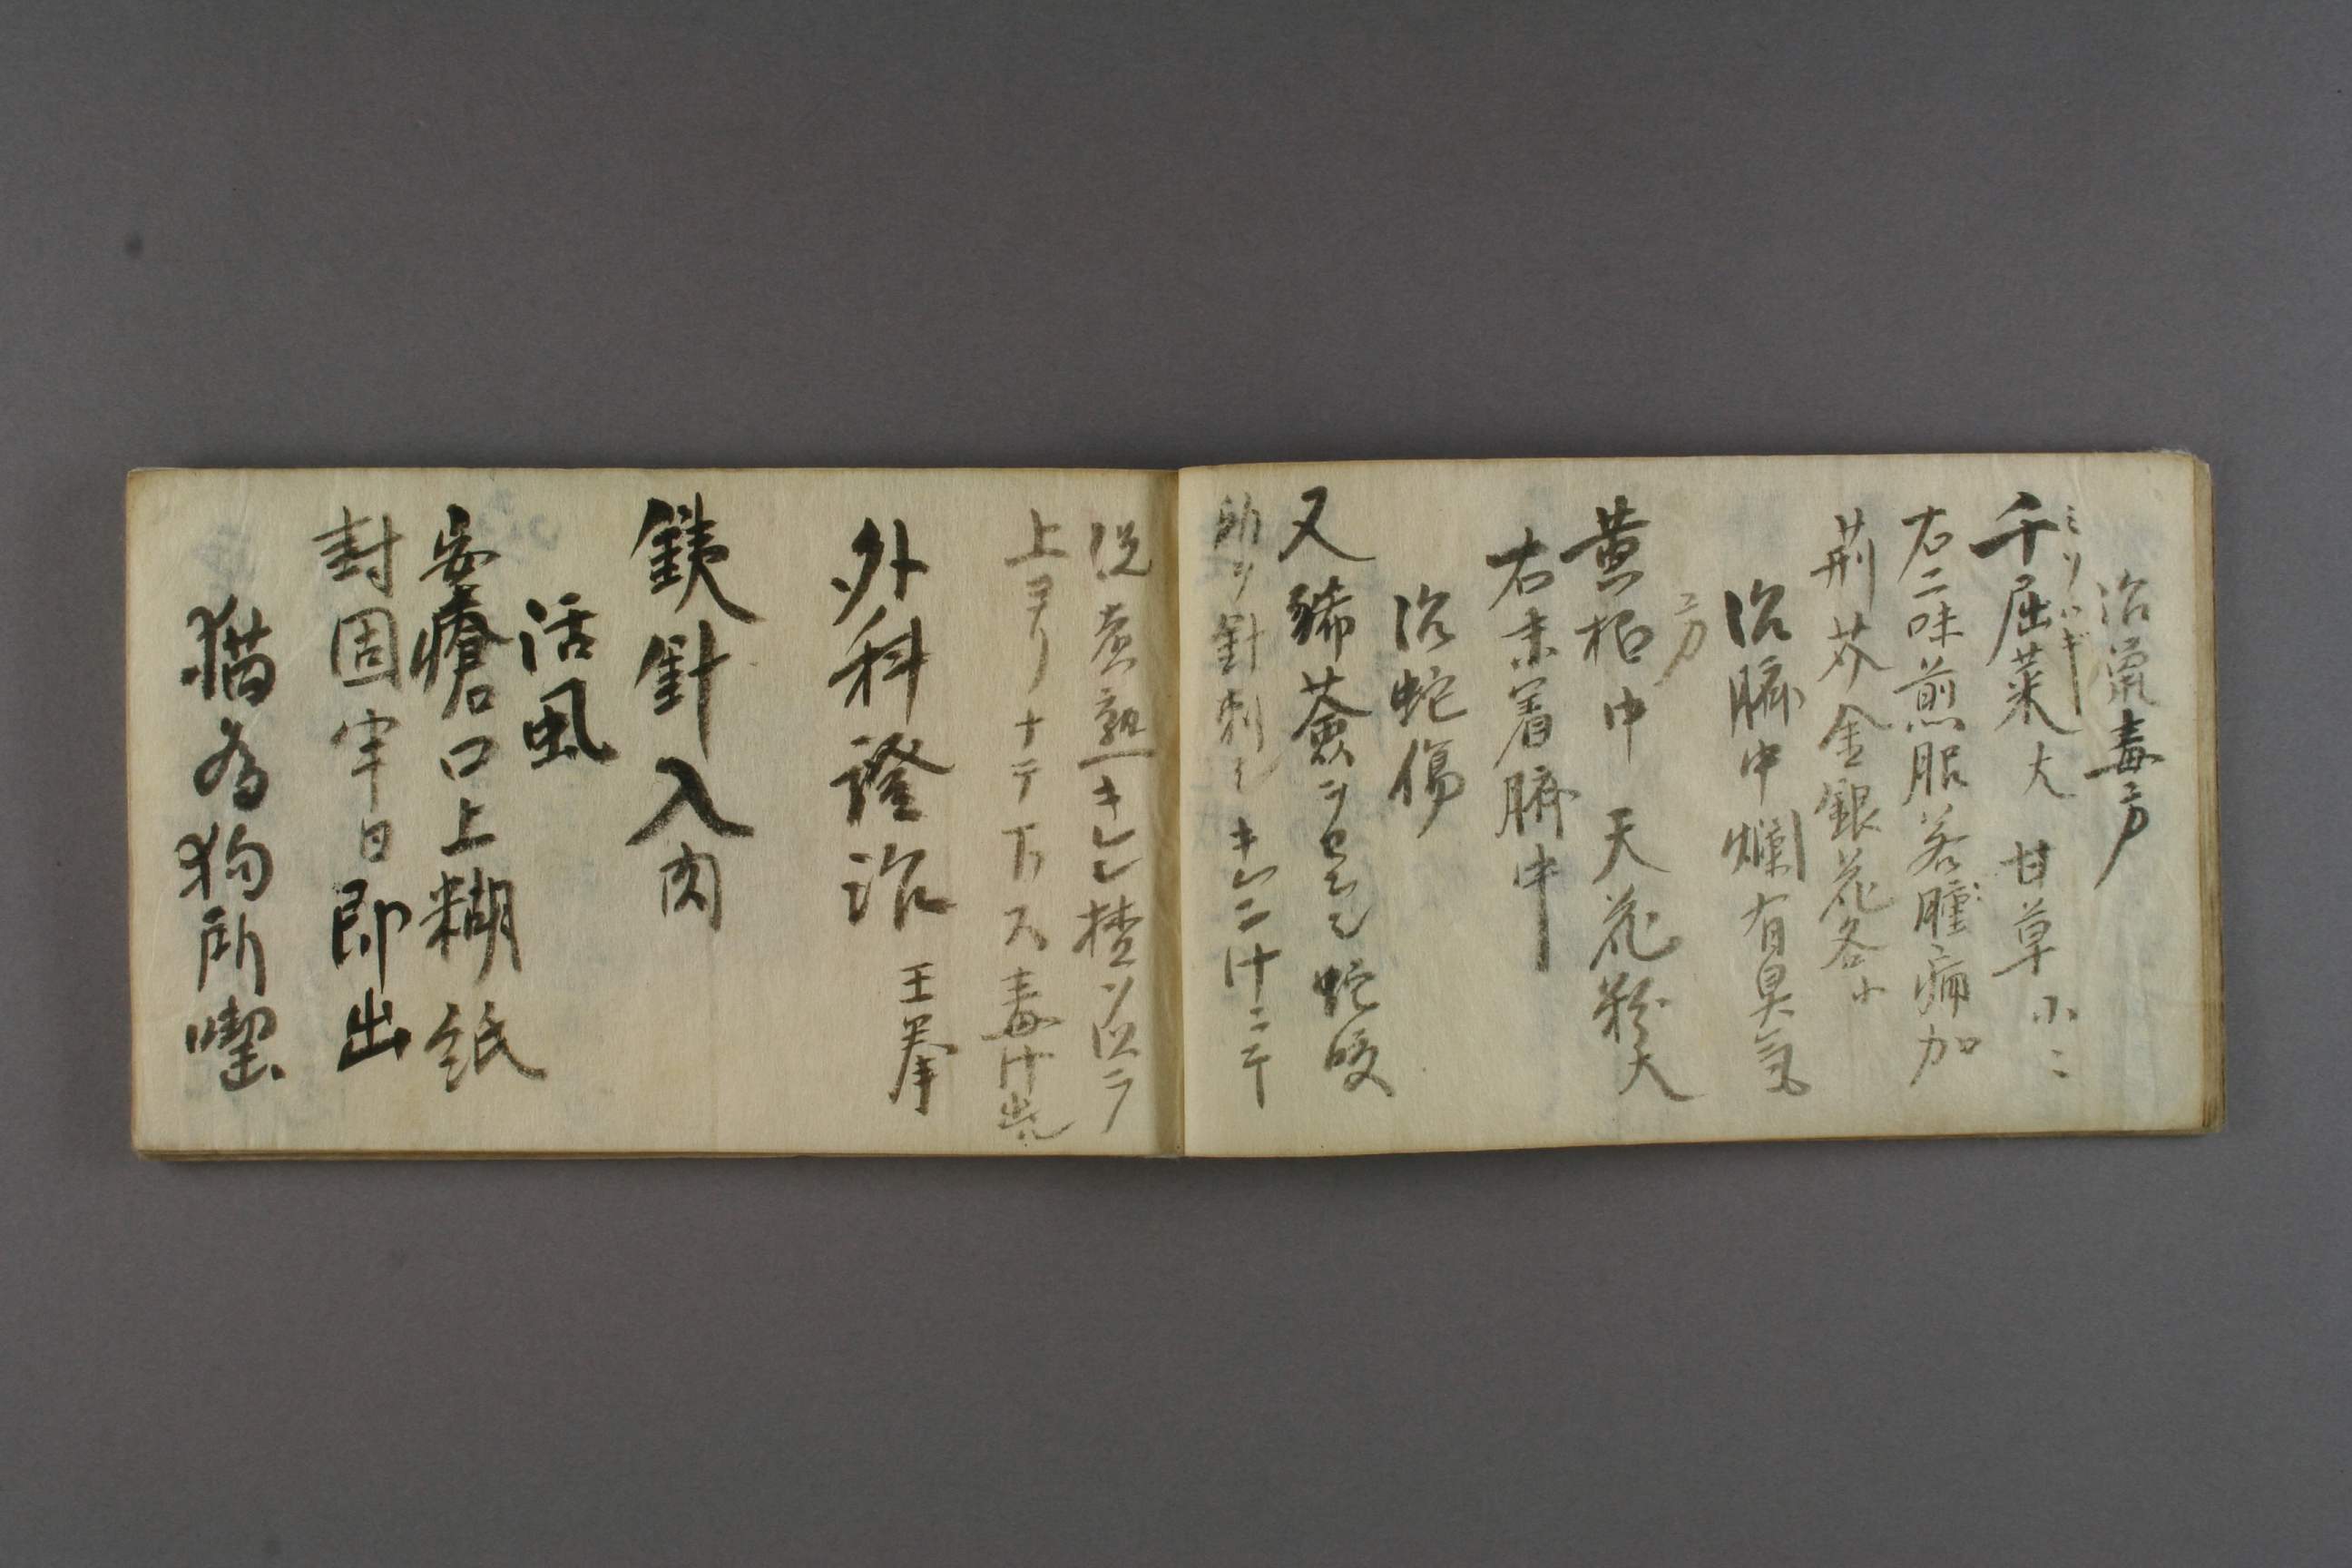 治瘡毒方
ミソハギ
千屈菜大 甘草小ニ
右二味煎服若腫痛加
荊芥金銀花各小
治臍中爛有臭気
方
黄柏中 天花粉大
右末著臍中
治蛇傷
又豨薟ヲ 蛇咬
ヲ針刺 汁ニテ
煮熟 ヲ以テ
上ヨリナテ下ス毒汁出
外科證治 王
銕針入肉
活虱
安瘡口上糊紙
封固半日即出
猫為狗所囓